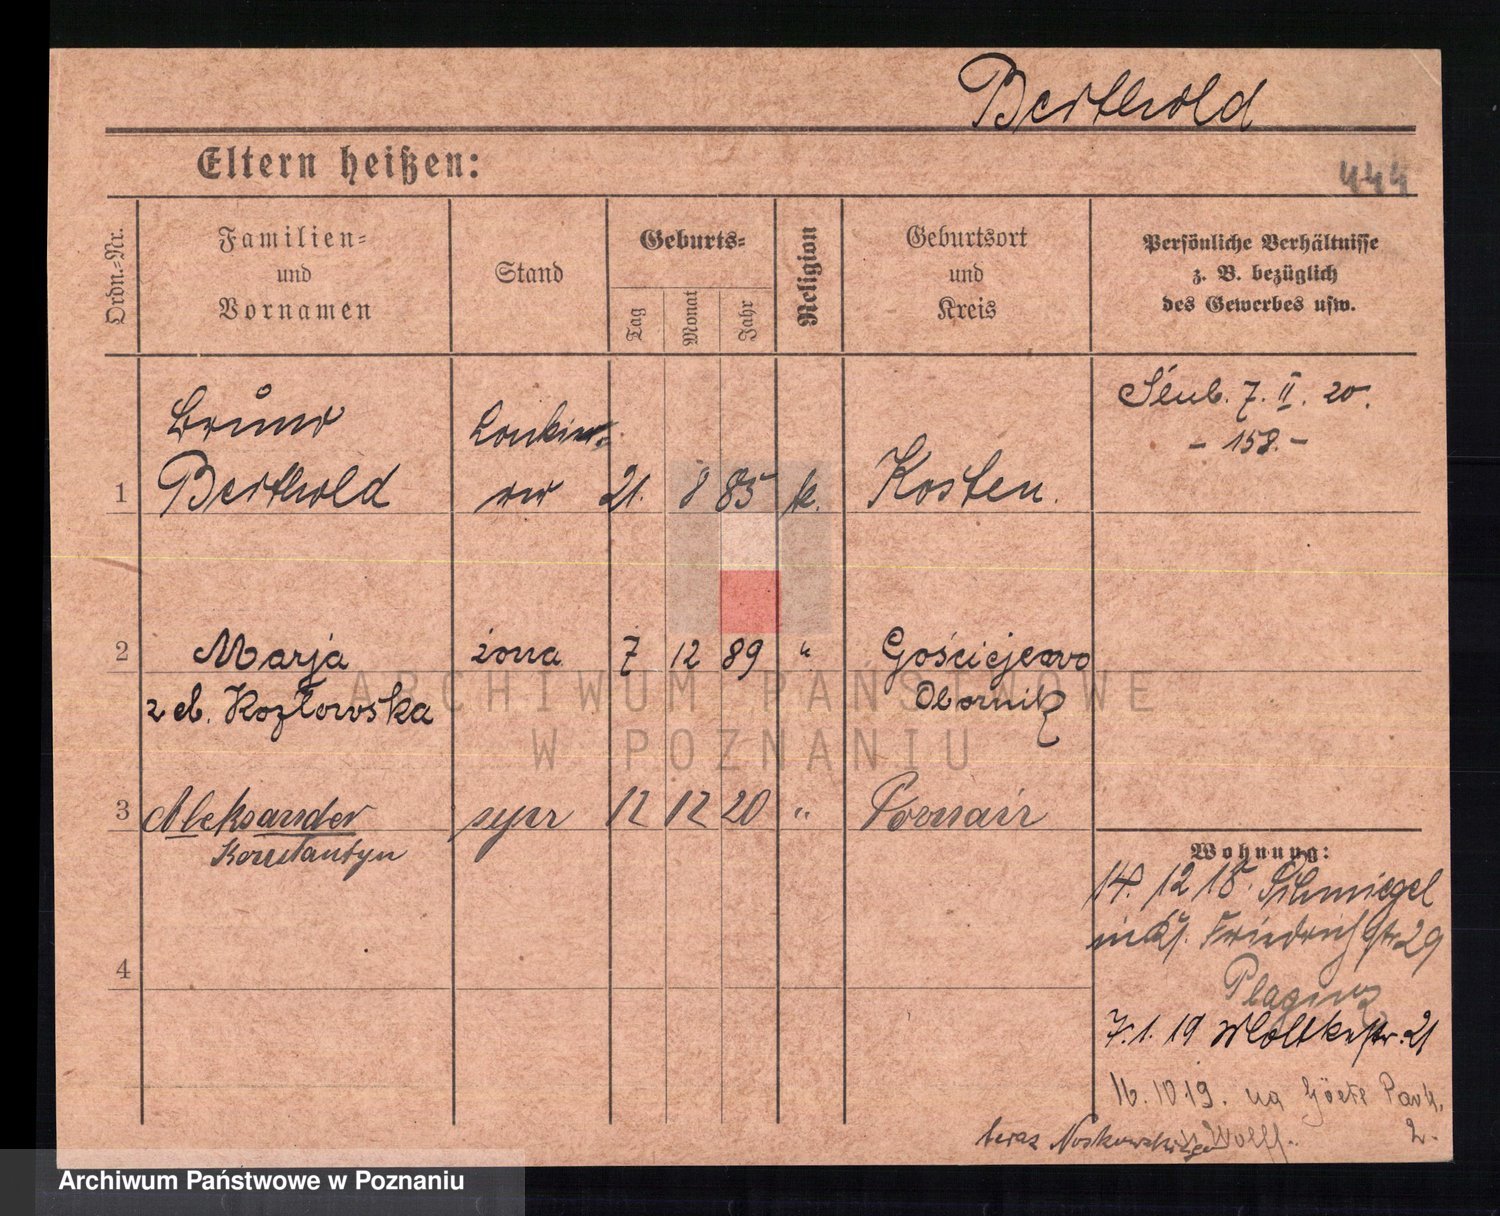 Berthold
Eltern heißen:
444
Ordn.=Nr.
Familien=
und
Vornamen
Stand
Geburts=
Tag
Monat
Jahr
Religion
Geburtsort
und
Kreis
Persönliche Verhältnisse
z. B. bezüglich
des Gewerbes usw.
Bruno
Berthold
1
21. 8 85 k.
Kosten.
Ślub. 7. II. 20.
- 158. -
2
Marja
z d. Kozłowska
żona
7 12 89 "
Gościejewo
Obornik
3
Aleksander
Konstantyn
syn
12 12 20 "
Poznań
4
Wohnung:
14. 12 18. Schmiegel
Friedrichstr 29
7. 1. 19 Moltkestr. 21
16. 10 19. na Göete Park.
2.
teraz Noskowskiego
Wolff.
ARCHIWUM PAŃSTWOWE
W POZNANIU
Archiwum Państwowe w Poznaniu